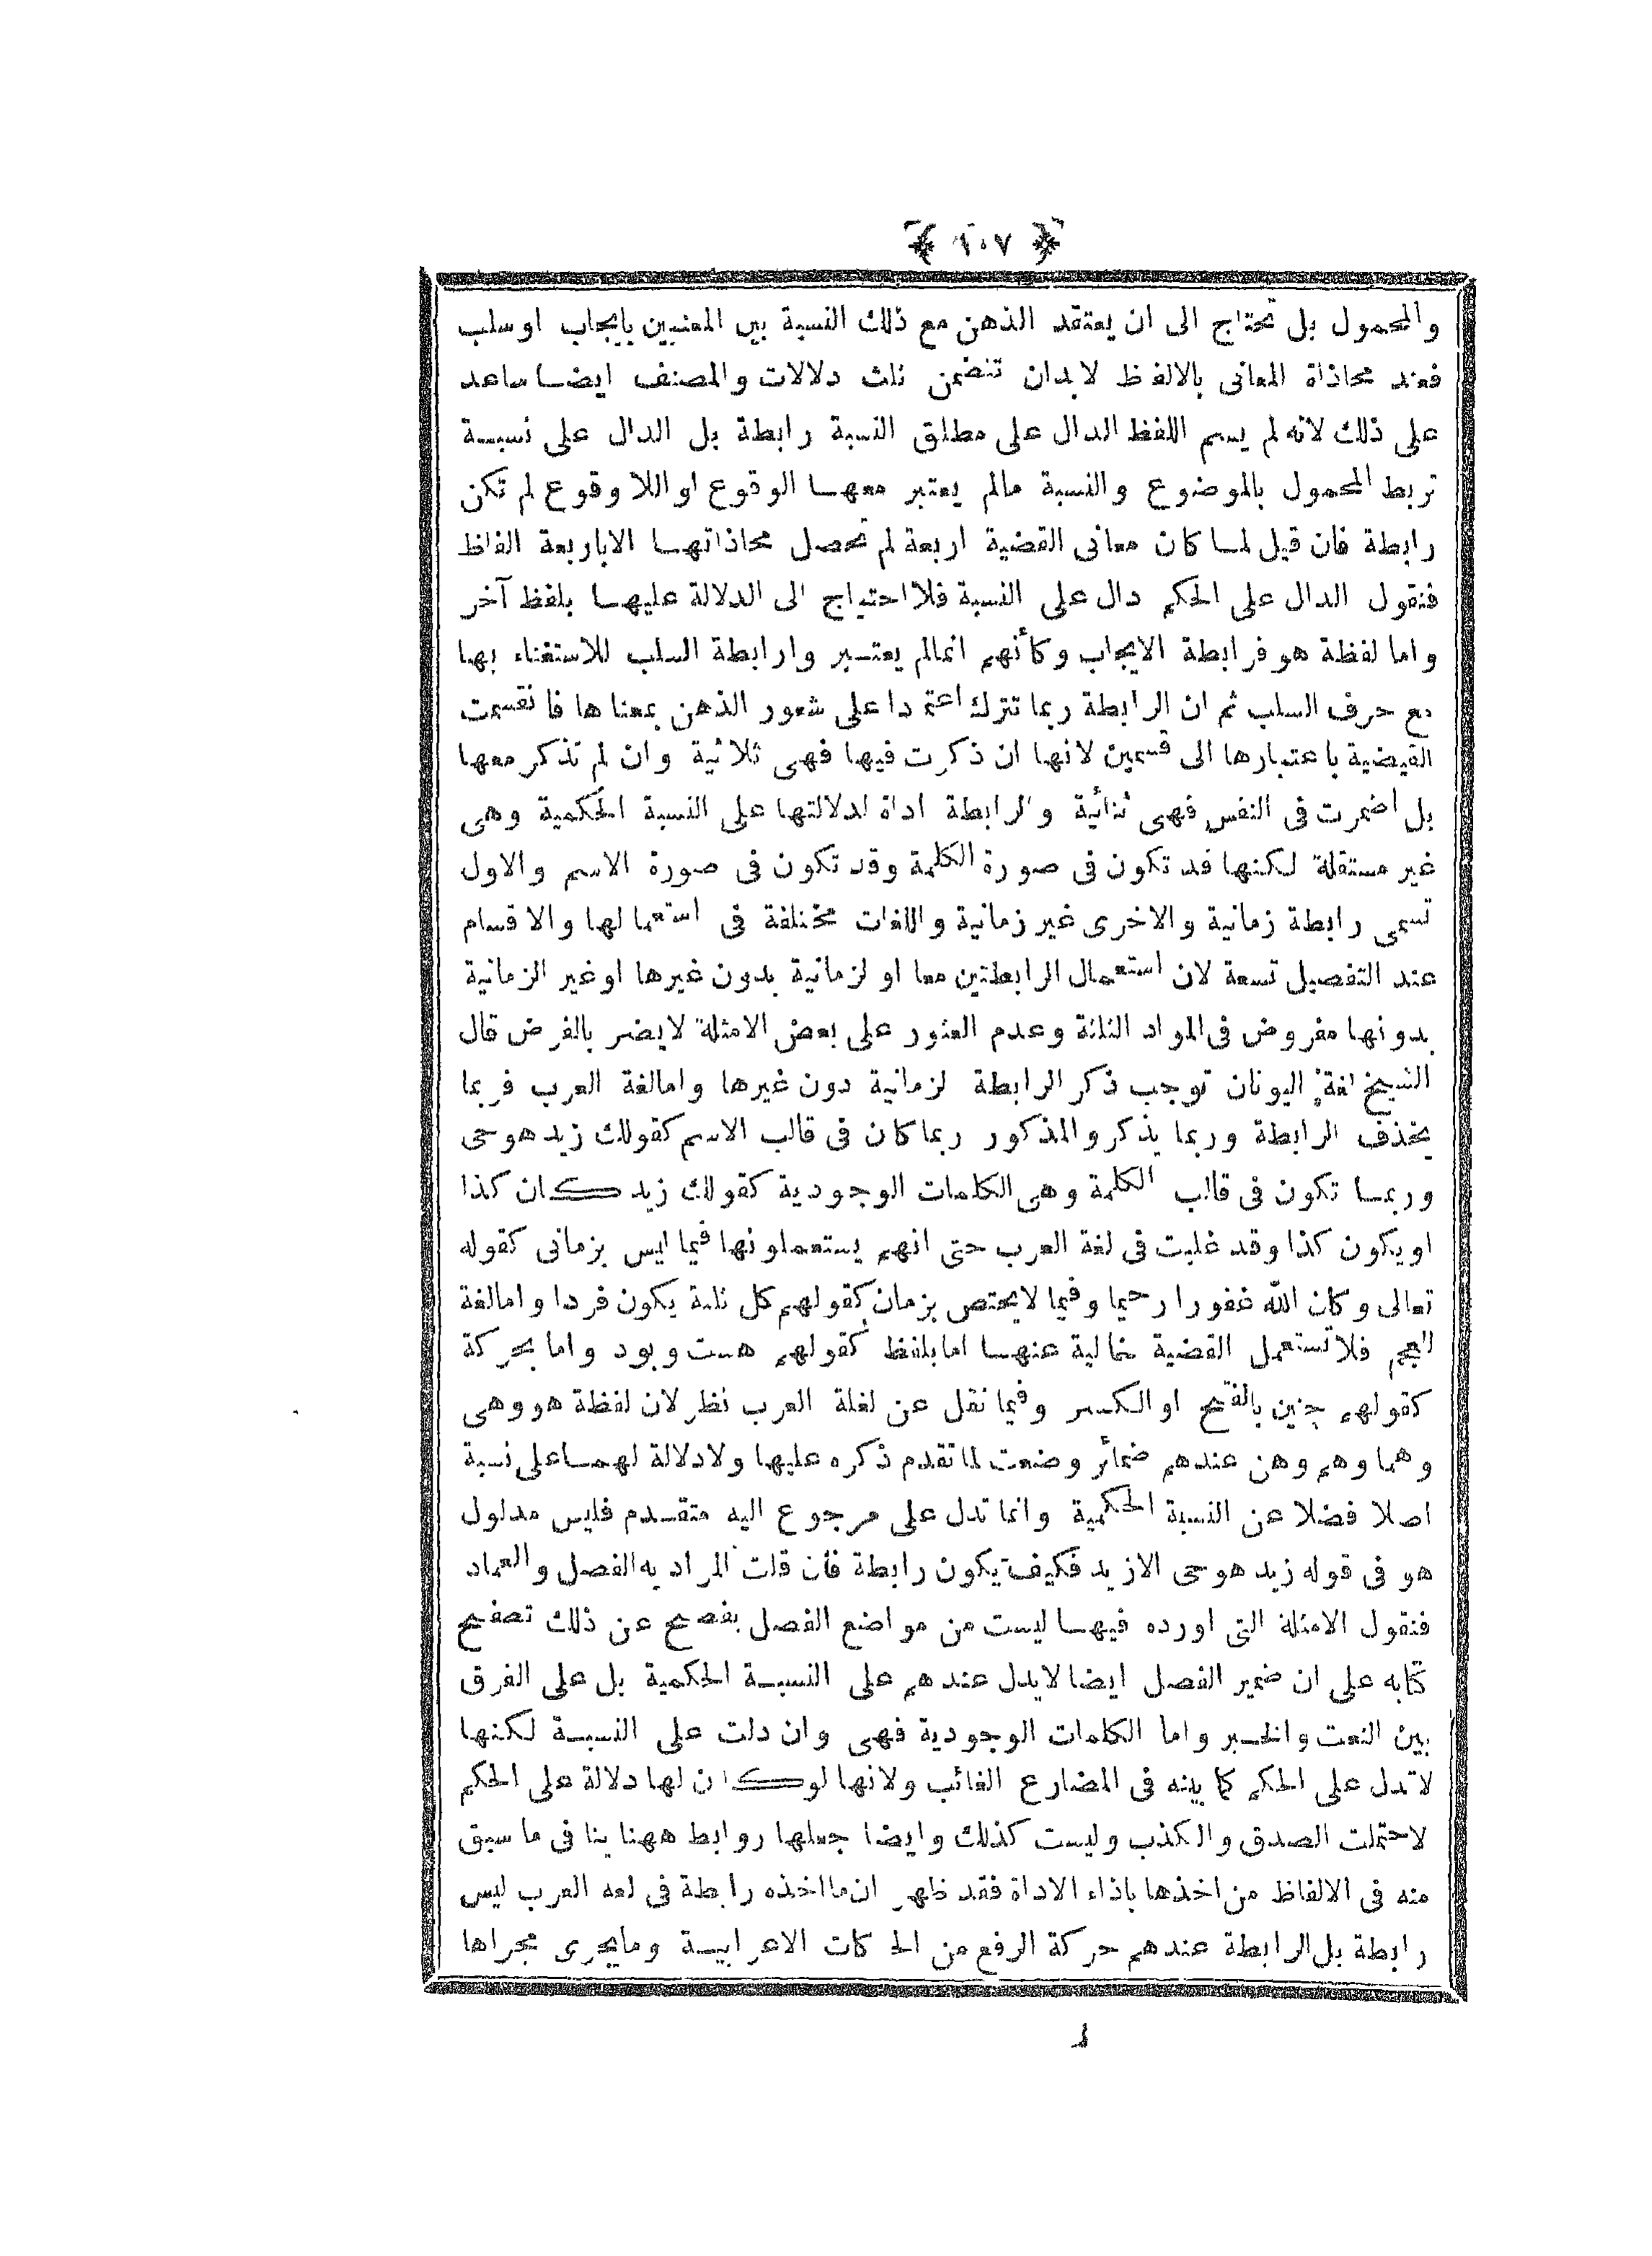 ﴿ ١٠٧ ﴾
والمحمول بل تحتاج الى ان يعتقد الذهن مع ذلك النسبة بين المعنيين بايجاب اوسلب
فعند محاذاة المعانى بالالفاظ لابدان تتضمن ثلث دلالات والمصنف ايضا ساعد
على ذلك لانه لم يسم اللفظ الدال على مطلق النسبة رابطة بل الدال على نسبة
تربط المحمول بالموضوع والنسبة مالم يعتبر معها الوقوع او اللا وقوع لم تكن
رابطة فان قيل لما كان معانى القضية اربعة لم تحصل محاذاتها الاباربعة الفاظ
فنقول الدال على الحكم دال على النسبة فلا احتياج الى الدلالة عليها بلفظ آخر
واما لفظة هو فرابطة الايجاب وكأنهم انمالم يعتبر وارابطة السلب للاستغناء بها
مع حرف السلب ثم ان الرابطة ربما تترك اعتمادا على شعور الذهن بمعناها فانقسمت
القضية باعتبارها الى قسمين لانها ان ذكرت فيها فهى ثلاثية وان لم تذكر معها
بل اضمرت فى النفس فهى ثنائية والرابطة اداة لدلالتها على النسبة الحكمية وهى
غير مستقلة لكنها قد تكون فى صورة الكلمة وقد تكون فى صورة الاسم والاول
تسمى رابطة زمانية والاخرى غير زمانية واللغات مختلفة فى استعمالها والاقسام
عند التفصيل تسعة لان استعمال الرابطتين معا او لزمانية بدون غيرها اوغير الزمانية
بدونها مفروض فى المواد الثلثة وعدم العثور على بعض الامثلة لايضر بالفرض قال
الشيخ لغة اليونان توجب ذكر الرابطة لزمانية دون غيرها وامالغة العرب فربما
يحذف الرابطة وربما يذكر والمذكور ربما كان فى قالب الاسم كقولك زيد هوحى
وربما تكون فى قالب الكلمة وهى الكلمات الوجودية كقولك زيد كان كذا
اويكون كذا وقد غلبت فى لغة العرب حتى انهم يستعملونها فيما ليس بزمانى كقوله
تعالى وكان الله غفورا رحيما وفيما لايختص بزمان كقولهم كل ثلثة يكون فردا وامالغة
العجم فلاتستعمل القضية خالية عنها اما بلفظ كقولهم هست وبود واما بحركة
كقولهم چنين بالفتح او الكسر وفيما نقل عن لغلة العرب نظر لان لفظة هووهى
وهما وهم وهن عندهم ضمائر وضعت لماتقدم ذكره عليها ولادلالة لهماعلى نسبة
اصلا فضلا عن النسبة الحكمية وانما تدل على مرجوع اليه متقدم فليس مدلول
هو فى قوله زيد هوحى الازيد فكيف يكون رابطة فان قلت المراد به الفصل والعماد
فنقول الامثلة التى اورده فيها ليست من مواضع الفصل يفصح عن ذلك تصفح
كتابه على ان ضمير الفصل ايضا لايدل عندهم على النسبة الحكمية بل على الفرق
بين النعت والخبر واما الكلمات الوجودية فهى وان دلت على النسبة لكنها
لاتدل على الحكم كما بينه فى المضارع الغائب ولانها لوكان لها دلالة على الحكم
لاحتملت الصدق والكذب وليست كذلك وايضا جعلها روابط ههنا ينافى ما سبق
منه فى الالفاظ من اخذها باذاء الاداة فقد ظهر ان ما اخذه رابطة فى لعه العرب ليس
رابطة بل الرابطة عندهم حركة الرفع من الحركات الاعرابية ومايجرى مجراها